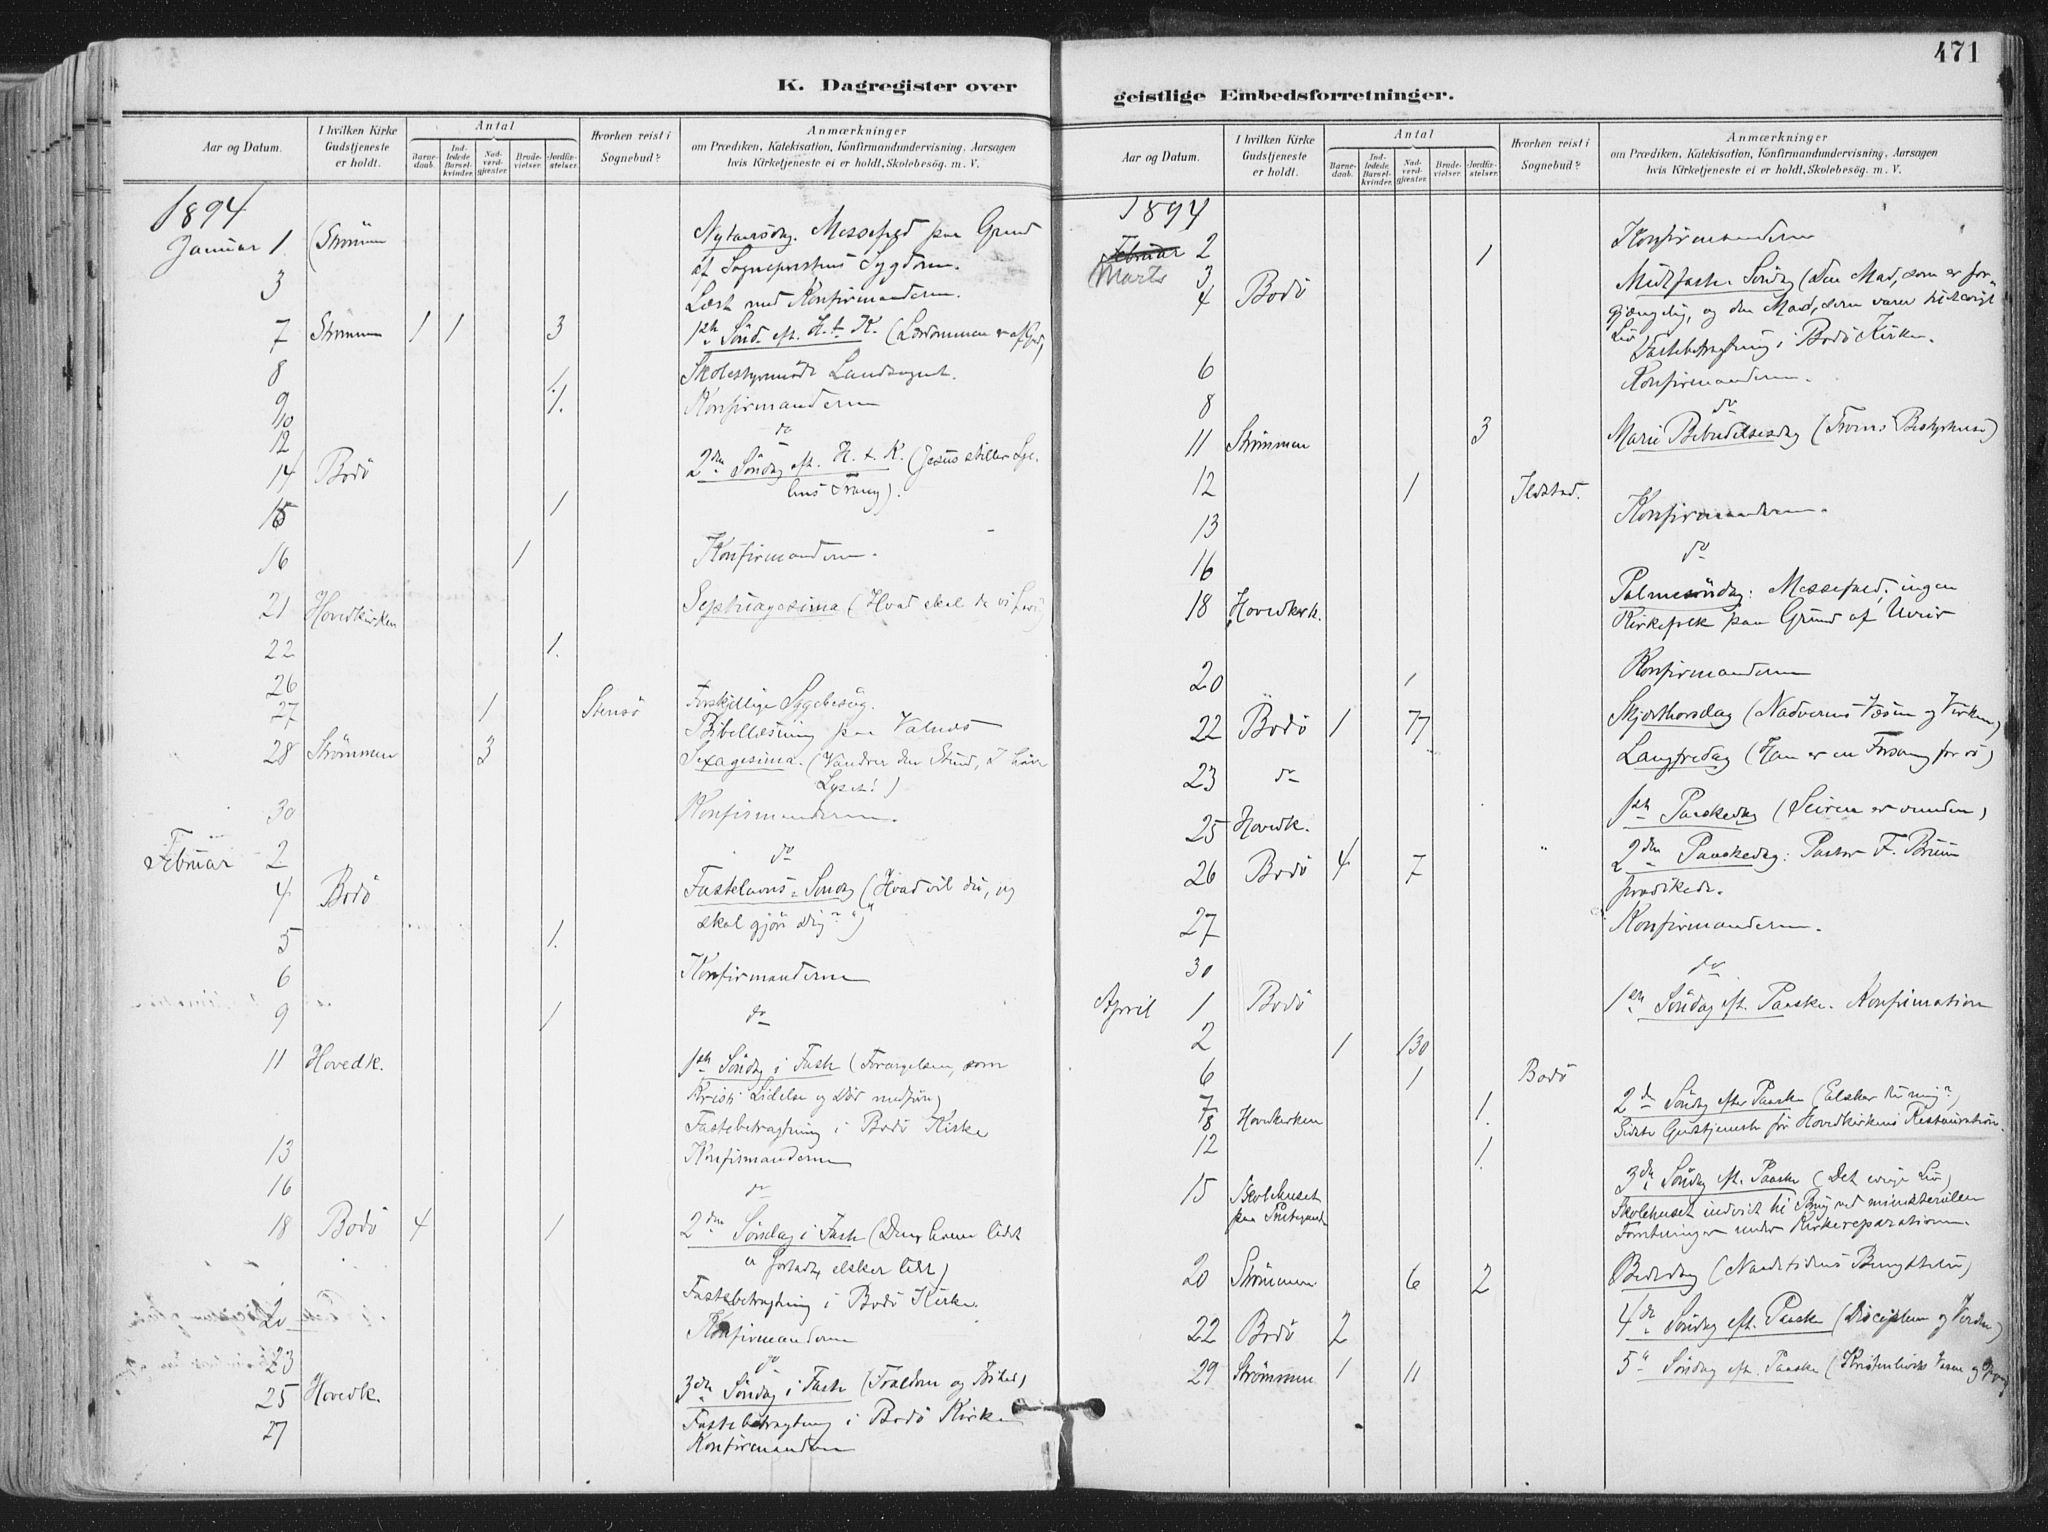 471
K. Dagregister over
Aar og Datum.
I hvilken Kirke Gudstjeneste er holdt.
Antal
Barnedaab.
Indledede Barselkvinder.
Nadverdgjæster.
Brudevielser.
Jordfæstelser.
Hvorhen reist i Sognebud?
Anmærkninger
om Prædiken, Katekisation, Konfirmandundervisning, Aarsagen
hvis Kirketjeneste ei er holdt, Skolebesøg. m. V.
1894
Januar 1. Strömm Nytaarsdag. Messefald paa Grund
af Sognepræstens Sygdom.
3 Læst med Konfirmanderne.
7 Strömm 1 1 3 1ste Sönd. eft. H. t. K. (Lærdommen er af Gud)
8 Skolestyremöde Landsognet.
9 1.
10 1. Konfirmanderne
12 do
14 Bodö 2den Söndag eft. H. t. K. (Jesus stiller
Trang).
15 1
16 1 Konfirmanderne.
21 Hovedkirken Septuagesima (Hvad skal da vi have)
22 1.
26 Forskjellige Sygebesög.
27 1 Stensö Bibellæsning paa Valnæs
28 Strömmen 3 Sexagesima. (Vandrer den Stund, I have
Lyset!)
30 Konfirmanderne.
Februar 2 do
4 Bodö Fastelavns Söndag (Hvad vil du, jeg
skal gjöre Dig?")
5 1.
6 Konfirmanderne
9 1 do
11 Hovedk. 1ste Söndag i Faste (Forargelsen, som
Kristi Lidelse og Död medförer)
Fastebetragtning i Bodö Kirke
13 Konfirmanderne
16 do
18 Bodö 4 1 2den Söndag i Faste (Den, hvem lidet
er forladt, elsker lidt)
Fastebetragtning i Bodö Kirke.
20 Konfirmanderne
23 do
25 Hovedk. 3die Söndag i Faste (Fraldom og Frihed)
Fastebetragtning i Bodö Kirke
27 Konfirmanderne
geistlige Embedsforretninger.
Aar og Datum.
I hvilken Kirke Gudstjeneste er holdt.
Antal
Barnedaab.
Indledede Barselkvinder.
Nadverdgjæster.
Brudevielser.
Jordfæstelser.
Hvorhen reist i Sognebud?
Anmærkninger
om Prædiken, Katekisation, Konfirmandundervisning, Aarsagen
hvis Kirketjeneste ei er holdt, Skolebesøg. m. V.
1894
Februar 2 1 Konfirmanderne
Marts 3
4 Bodö Midtfaste Söndag (Den Mad, som er for-
gjængelig, og den Mad, som varer til evigt
Liv
Fastebetragtning i Bodö Kirke.
6 Konfirmanderne.
8 do
11 Strömmen 3 Mariæ Bebudelsesdag (Troens Bestyrkelse)
12 1 Ildstad.
13 Konfirmanderne.
16 do
18 Hovedkirk. Palmesöndag: Messefald, ingen
Kirkefolk paa Grund af Uveir
20 1 Konfirmanderne
22 Bodö 1 77 Skjærthorsdag (Nadverens Væsen og Virken)
23 do Langfredag (Han er en Forsoning for os)
25 Hovedk. 1ste Paaskedag (Seiren er vunden)
26 Bodö 4 7 2den Paaskedag: Pastor F. Bruun
prædikede.
27 Konfirmanderne.
30 do
April 1 Bodö 1ste Söndag eft. Paaske. Konfirmation
2 1 130
6 1 Bodö
7 1.
8 Hovedkirken 2den Söndag efter Paaske (Elsker du mig?)
Sidste Gudstjeneste för Hovedkirkens Restauration.
12 1.
15 Skolehuset
paa Prestegaarden 3die Söndag eft. Paaske (Det evige Liv)
Skolehuset indviet til Brug ved ministerielle
Forretninger under Kirkereparationen.
20 Strömmen 6 2 Bededag (Naadetidens Benyttelse)
22 Bodö 2 4de Söndag eft. Paaske (Disciplene og Verden)
29 Strömmen 1 11 5te Söndag eft. Paaske (Kristenlivets Væsen og